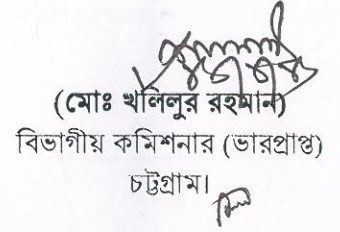 (মোঃ খলিলুর রহমান)
বিভাগীয় কমিশনার (ভারপ্রাপ্ত)
চট্টগ্রাম।